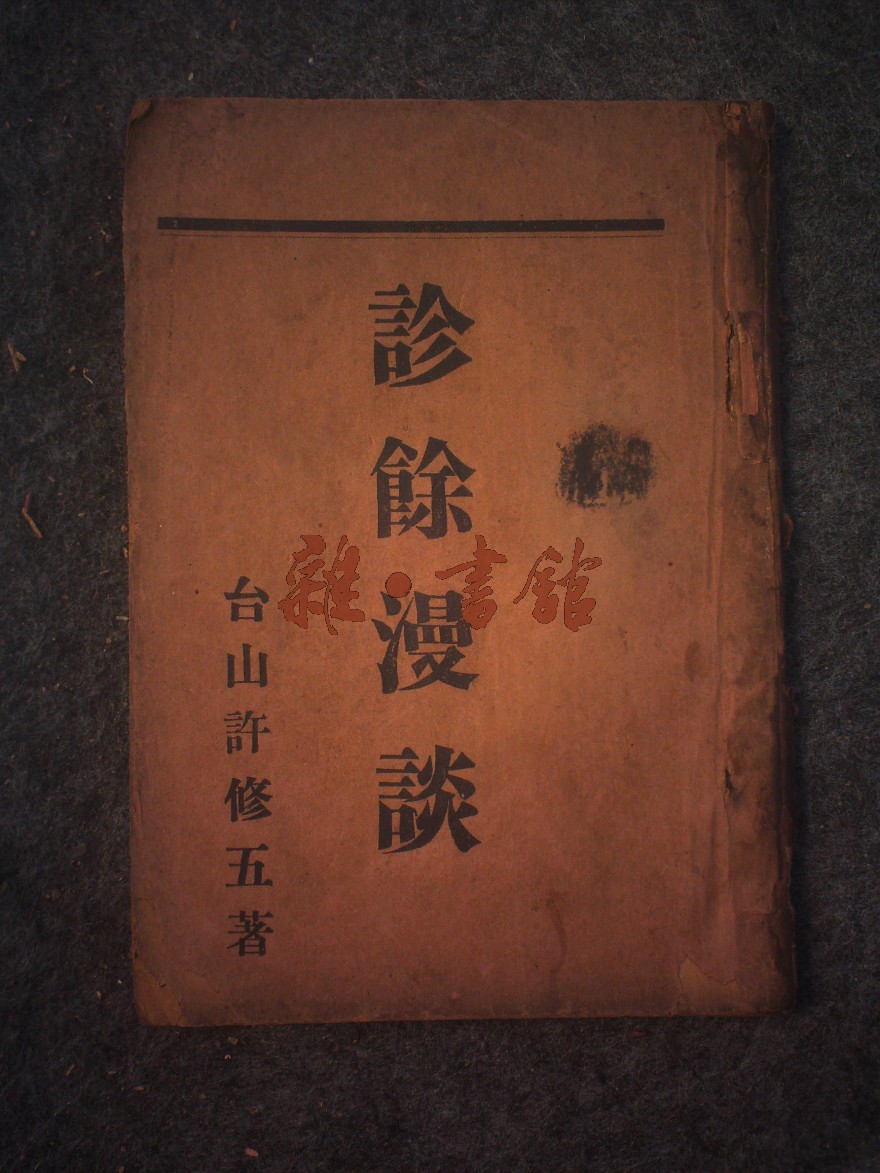 診餘漫談
台山許修五著
雜·書館